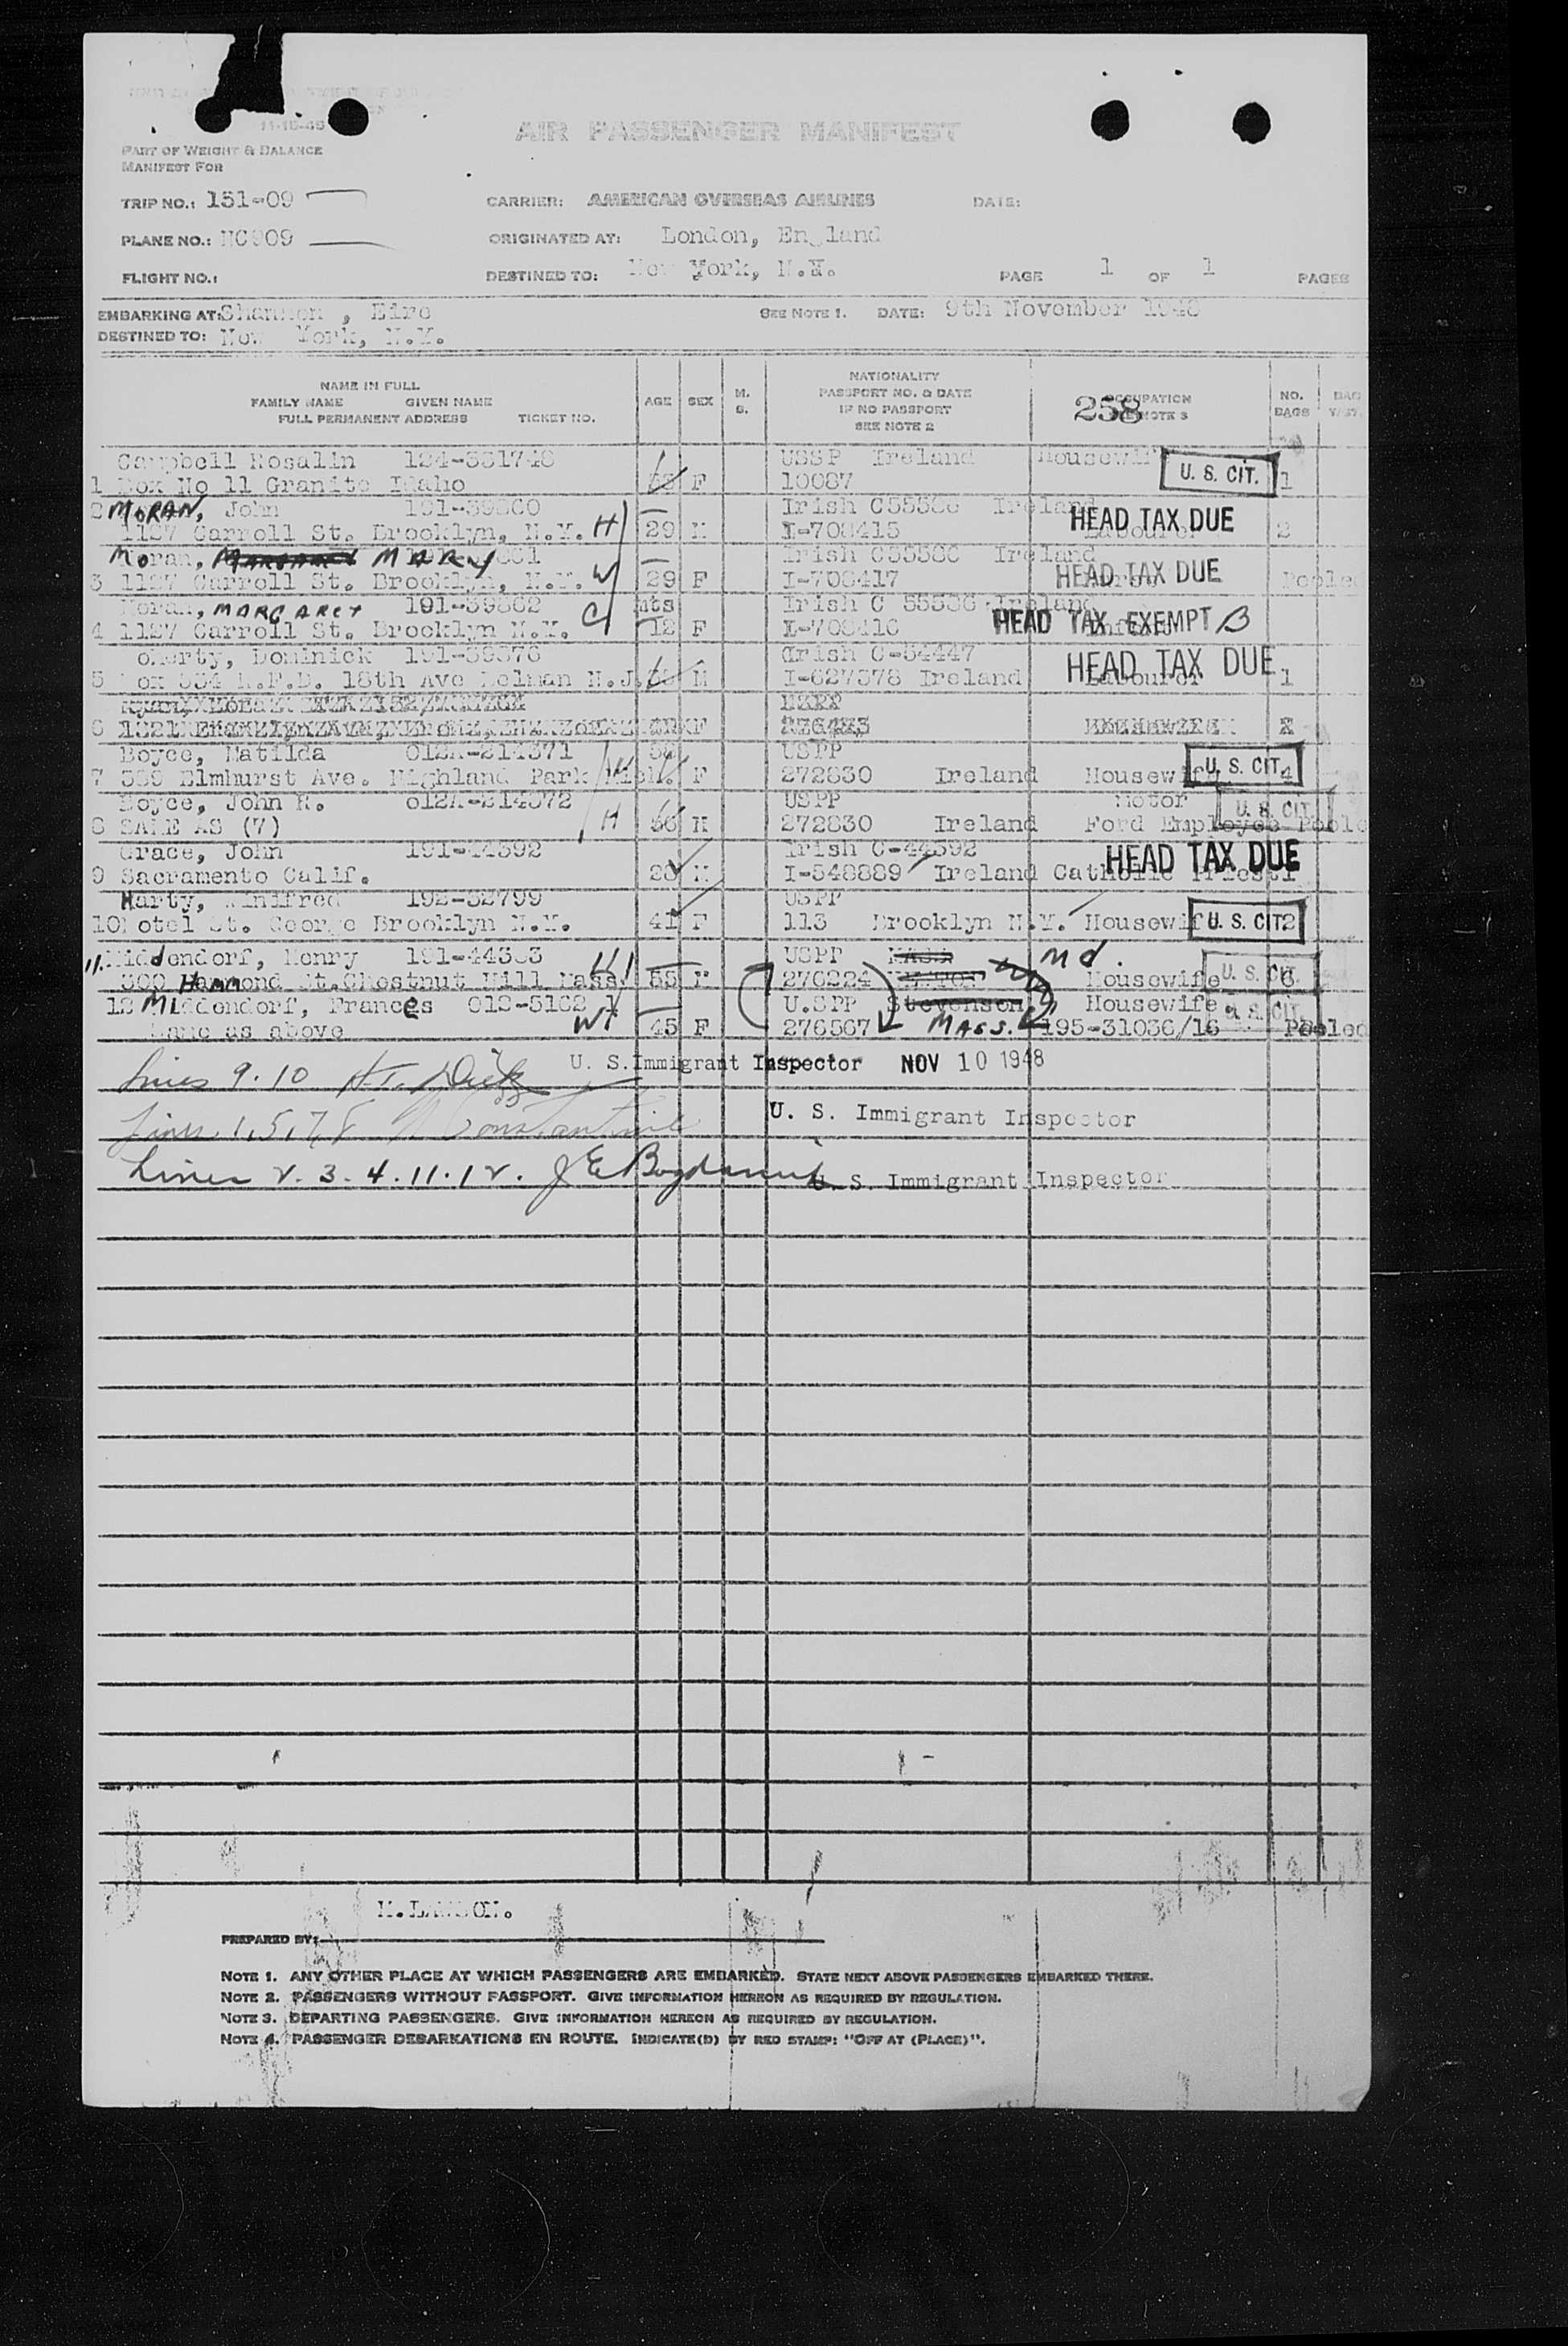 11-15-45
AIR PASSENGER MANIFEST
PART OF WEIGHT & BALANCE
MANIFEST FOR
TRIP NO.: 151-09 CARRIER: AMERICAN OVERSEAS AIRLINES DATE:
PLANE NO.: NC909 ORIGINATED AT: London, England
FLIGHT NO.: DESTINED TO: New York, N.Y. PAGE 1 OF 1 PAGES
EMBARKING AT: Shannon , Eire SEE NOTE 1. DATE: 9th November 1948
DESTINED TO: New York, N.Y.
NAME IN FULL
FAMILY NAME GIVEN NAME
FULL PERMANENT ADDRESS TICKET NO.
AGE SEX M. S.
NATIONALITY
PASSPORT NO. & DATE
IF NO PASSPORT
SEE NOTE 2
258 OCCUPATION
NOTE 3
NO. BAGS
Campbell Rosalin 124-331748 USSP Ireland Housewife U. S. CIT.
1 Box No 11 Granite Idaho F 10087 1
2 MORAN, John Irish Ireland
1127 Carroll St. Brooklyn, N.Y. H 29 M I-708415 Labourer HEAD TAX DUE 2
Moran, MARY Irish Ireland
3 1127 Carroll St. Brooklyn, N.Y. W 29 F I-708417 HEAD TAX DUE Pooled
Moran, MARGARET 191-39862 mts Irish Ireland
4 1127 Carroll St. Brooklyn N.Y. C 12 F I-708416 Infant HEAD TAX EXEMPT B
Doherty, Dominick 191-39376 Irish C-54447
5 Box 534 R.F.D. 18th Ave N.J. M I-627378 Ireland Labourer HEAD TAX DUE 1
6 F
Boyce, Matilda 012A-214371 USPP
7 Elmhurst Ave. Highland Park Mich. W F 272830 Ireland Housewife U. S. CIT. 4
Boyce, John R. 012A-214372 USPP Motor U. S. CIT.
8 SAME AS (7) H 56 M 272830 Ireland Ford Employee Pooled
Grace, John 191-44392 Irish C-44392 HEAD TAX DUE
9 Sacramento Calif. 28 M I-548889 Ireland Catholic Priest 1
Harty, Winifred 192-32799 USPP
10 Hotel St. George Brooklyn N.Y. 41 F 113 Brooklyn N.Y. Housewife U. S. CIT. 2
11. Middendorf, Henry 191-44383 USPP Md.
300 Hammond St. Chestnut Hill Mass. H 55 M 276224 Housewife U. S. CIT. 6
12 Middendorf, Frances 012-5162 U.SPP Stevenson Housewife U. S. CIT.
Same as above Wf 45 F 276567 MASS. 195-31036/16 Pooled
Lines 9.10 U. S. Immigrant Inspector NOV 10 1948
Lines 1,5,7,8 Constantine U. S. Immigrant Inspector
Lines 2. 3. 4. 11. 12. J E U. S. Immigrant Inspector
PREPARED BY:
NOTE 1. ANY OTHER PLACE AT WHICH PASSENGERS ARE EMBARKED. STATE NEXT ABOVE PASSENGERS EMBARKED THERE.
NOTE 2. PASSENGERS WITHOUT PASSPORT. GIVE INFORMATION HEREON AS REQUIRED BY REGULATION.
NOTE 3. DEPARTING PASSENGERS. GIVE INFORMATION HEREON AS REQUIRED BY REGULATION.
NOTE 4. PASSENGER DEBARKATIONS EN ROUTE. INDICATE(D) BY RED STAMP: "OFF AT (PLACE)".